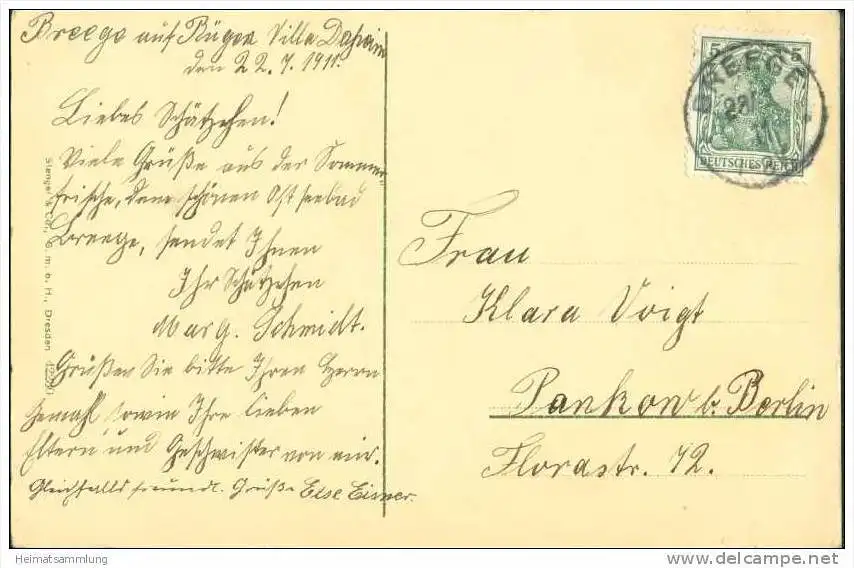 Breege auf Rügen Villa Daheim
den 22.7.1911.
Liebes Schätzchen!
Viele Grüße aus der Sommer-
frische, dem schönen Ostseebad
Breege, sendet Ihnen
Ihr Schätzchen
Marg. Schmidt.
Grüßen Sie bitte Ihren Herrn
Gemahl sowie Ihre lieben
Eltern und Geschwister von mir.
Gleichfalls freundl. Grüße Else Eisner.
Stengel & Co., G. m. b. H., Dresden
5 5
DEUTSCHES REICH
BREEGE
22
Frau
Klara Voigt
Pankow b. Berlin
Florastr. 72.
Heimatsammlung
www.delcampe.net